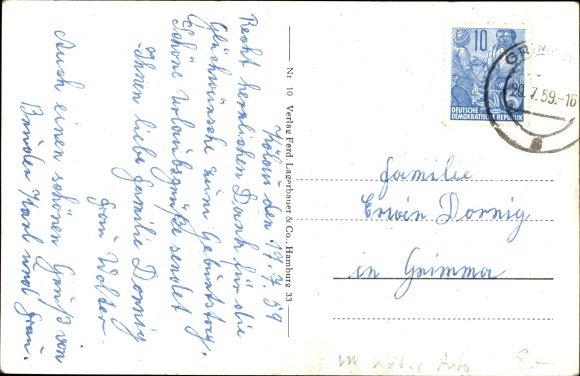 Kölow den 17.7.59
Recht herzlichen Dank für die
Glückwünsche zum Geburtstag.
Schöne Urlaubsgrüße sendet
Ihnen liebe Familie Dornig
Frau Wolter.
Auch einen schönen Gruß von
Bruder Karl und Frau.
Nr 10 Verlag Ferd. Lagerbauer & Co., Hamburg 33
10
DEUTSCHE
DEMOKRATISCHE REPUBLIK
GRIMM
.7.59.-16
Familie
Erwin Dornig
in Grimma
8.-